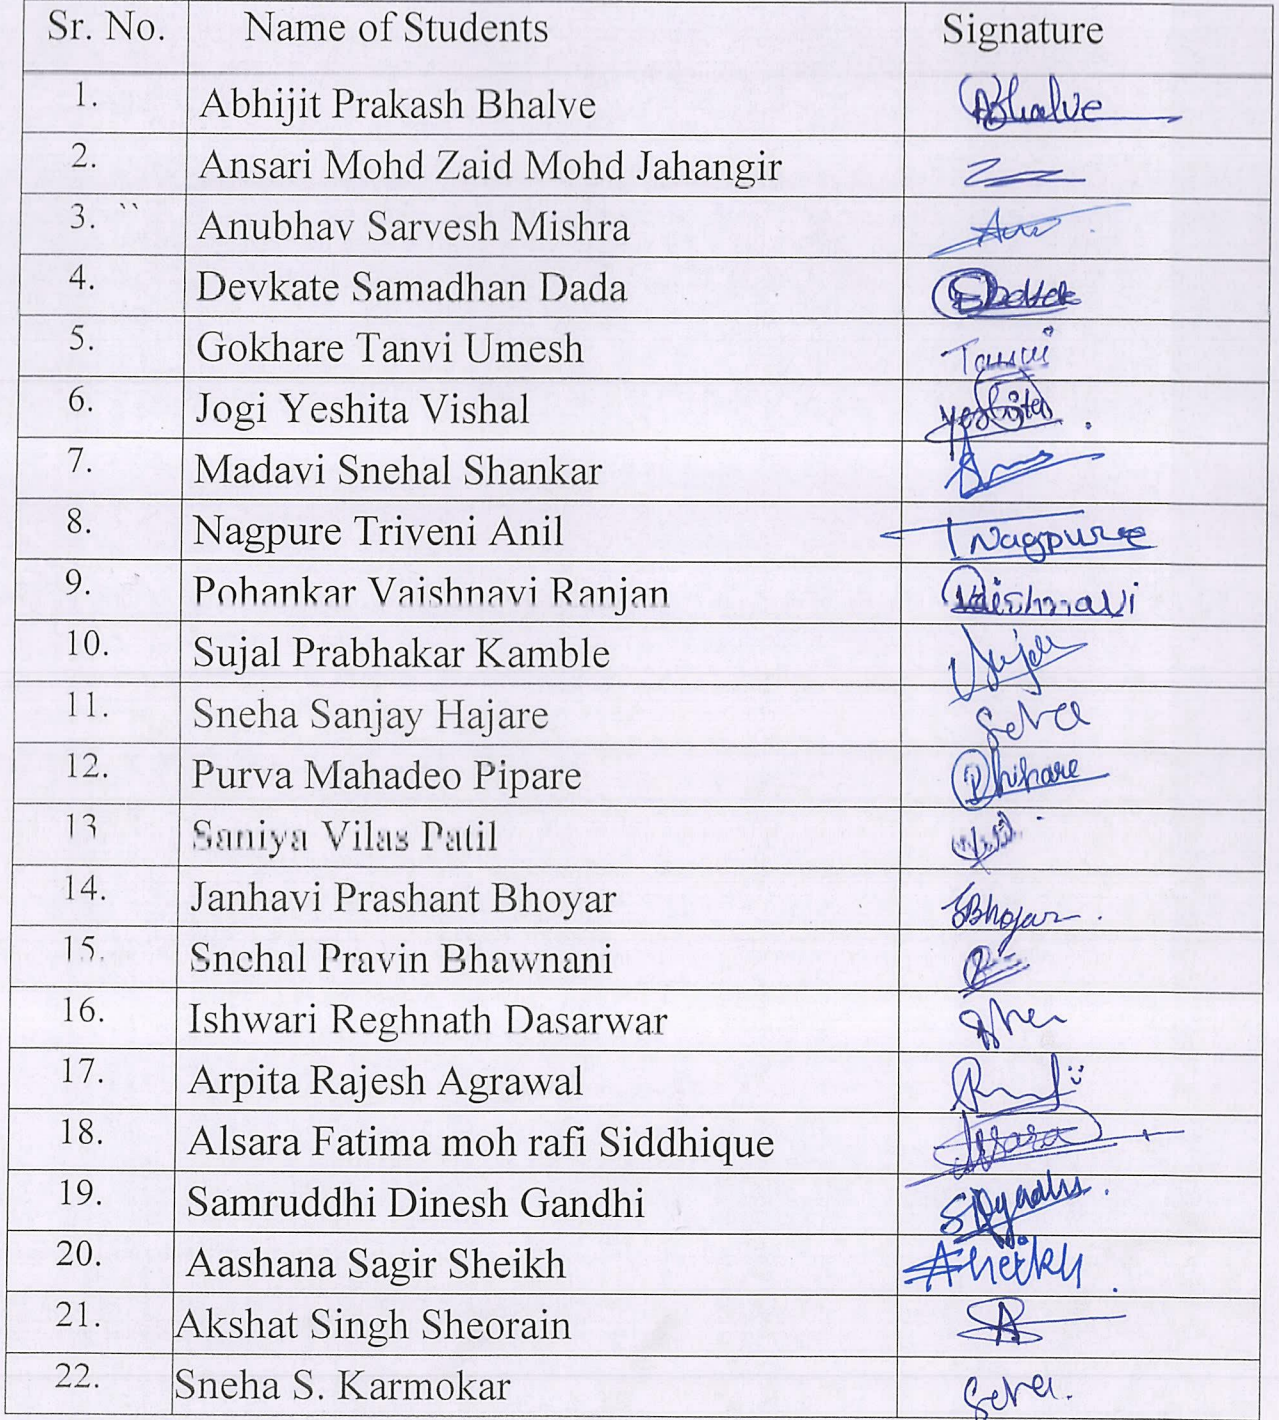 Sr. No. Name of Students Signature
1. Abhijit Prakash Bhalve ABhalve
2. Ansari Mohd Zaid Mohd Jahangir
3. `` Anubhav Sarvesh Mishra
4. Devkate Samadhan Dada
5. Gokhare Tanvi Umesh Tanvi
6. Jogi Yeshita Vishal Yeshita
7. Madavi Snehal Shankar
8. Nagpure Triveni Anil TNagpure
9. Pohankar Vaishnavi Ranjan Vaishnavi
10. Sujal Prabhakar Kamble Sujal
11. Sneha Sanjay Hajare
12. Purva Mahadeo Pipare
13 Saniya Vilas Patil
14. Janhavi Prashant Bhoyar JBhoyar.
15. Snehal Pravin Bhawnani
16. Ishwari Reghnath Dasarwar
17. Arpita Rajesh Agrawal
18. Alsara Fatima moh rafi Siddhique
19. Samruddhi Dinesh Gandhi
20. Aashana Sagir Sheikh ASheikh.
21. Akshat Singh Sheorain
22. Sneha S. Karmokar